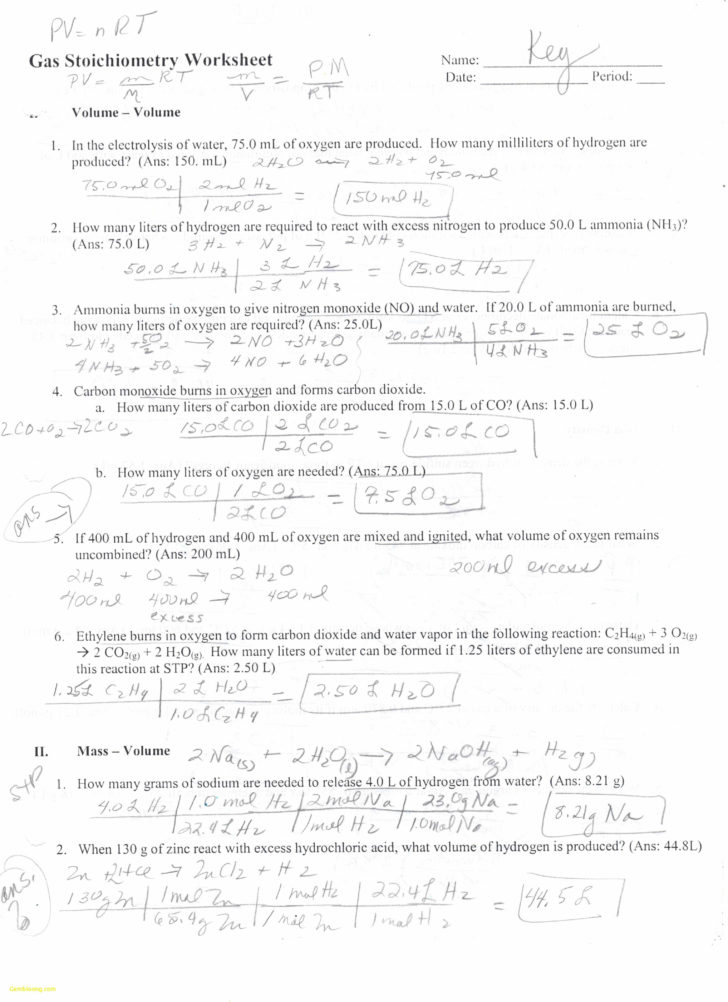 PV = nRT
Gas Stoichiometry Worksheet
Name: Key
PV = m/M RT m/V = P.M/RT
Date: Period:
Volume – Volume
1. In the electrolysis of water, 75.0 mL of oxygen are produced. How many milliliters of hydrogen are
produced? (Ans: 150. mL) 2H2O → 2H2 + O2
75.0 ml
75.0 ml O2 | 2 ml H2 = 150 ml H2
1 ml O2
2. How many liters of hydrogen are required to react with excess nitrogen to produce 50.0 L ammonia (NH3)?
(Ans: 75.0 L) 3H2 + N2 → 2NH3
50.0 L NH3 | 3 L H2 = 75.0 L H2
2 L NH3
3. Ammonia burns in oxygen to give nitrogen monoxide (NO) and water. If 20.0 L of ammonia are burned,
how many liters of oxygen are required? (Ans: 25.0L)
2NH3 + 5/2 O2 → 2NO + 3H2O 20.0L NH3 | 5L O2 = 25 L O2
4L NH3
4NH3 + 5O2 → 4NO + 6H2O
4. Carbon monoxide burns in oxygen and forms carbon dioxide.
a. How many liters of carbon dioxide are produced from 15.0 L of CO? (Ans: 15.0 L)
2CO + O2 → 2CO2 15.0L CO | 2 L CO2 = 15.0L CO
2L CO
b. How many liters of oxygen are needed? (Ans: 75.0 L)
15.0 L CO | 1 L O2 = 7.5 L O2
2L CO
ans →
5. If 400 mL of hydrogen and 400 mL of oxygen are mixed and ignited, what volume of oxygen remains
uncombined? (Ans: 200 mL)
2H2 + O2 → 2H2O 200ml excess
400ml 400ml → 400ml
excess
6. Ethylene burns in oxygen to form carbon dioxide and water vapor in the following reaction: C2H4(g) + 3 O2(g)
→ 2 CO2(g) + 2 H2O(g). How many liters of water can be formed if 1.25 liters of ethylene are consumed in
this reaction at STP? (Ans: 2.50 L)
1.25L C2H4 | 2 L H2O = 2.50 L H2O
1.0L C2H4
II. Mass – Volume 2Na(s) + 2H2O(l) → 2NaOH(aq) + H2(g)
STP
1. How many grams of sodium are needed to release 4.0 L of hydrogen from water? (Ans: 8.21 g)
4.0 L H2 | 1.0 mol H2 | 2 mol Na | 23.0g Na = 8.21g Na
22.4L H2 | 1 mol H2 | 1.0 mol Na
2. When 130 g of zinc react with excess hydrochloric acid, what volume of hydrogen is produced? (Ans: 44.8L)
Zn + 2HCl → ZnCl2 + H2
ans.
130g Zn | 1 mol Zn | 1 mol H2 | 22.4L H2 = 44.5 L
65.4g Zn | 1 mol Zn | 1 mol H2